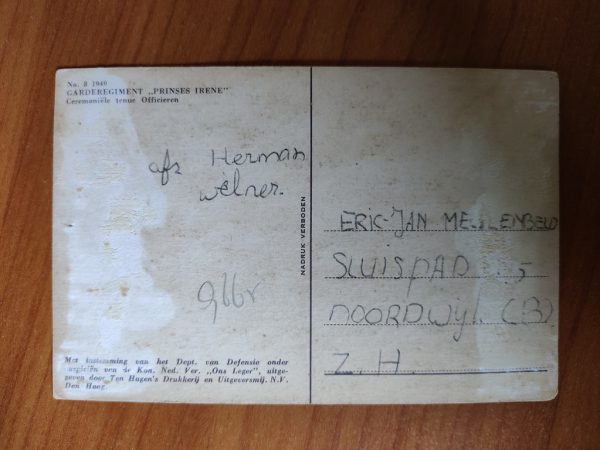 No. 8 1949
GARDEREGIMENT „PRINSES IRENE"
Ceremoniële tenue Officieren
afz Herman
welner.
NADRUK VERBODEN
ERIC-JAN
SLUISPAD 5
NOORDWijk (B)
Z.H.
Met toestemming van het Dept. van Defensie onder
auspiciën van de Kon. Ned. Ver. „Ons Leger", uitge-
geven door Ten Hagen's Drukkerij en Uitgeversmij. N.V.
Den Haag.